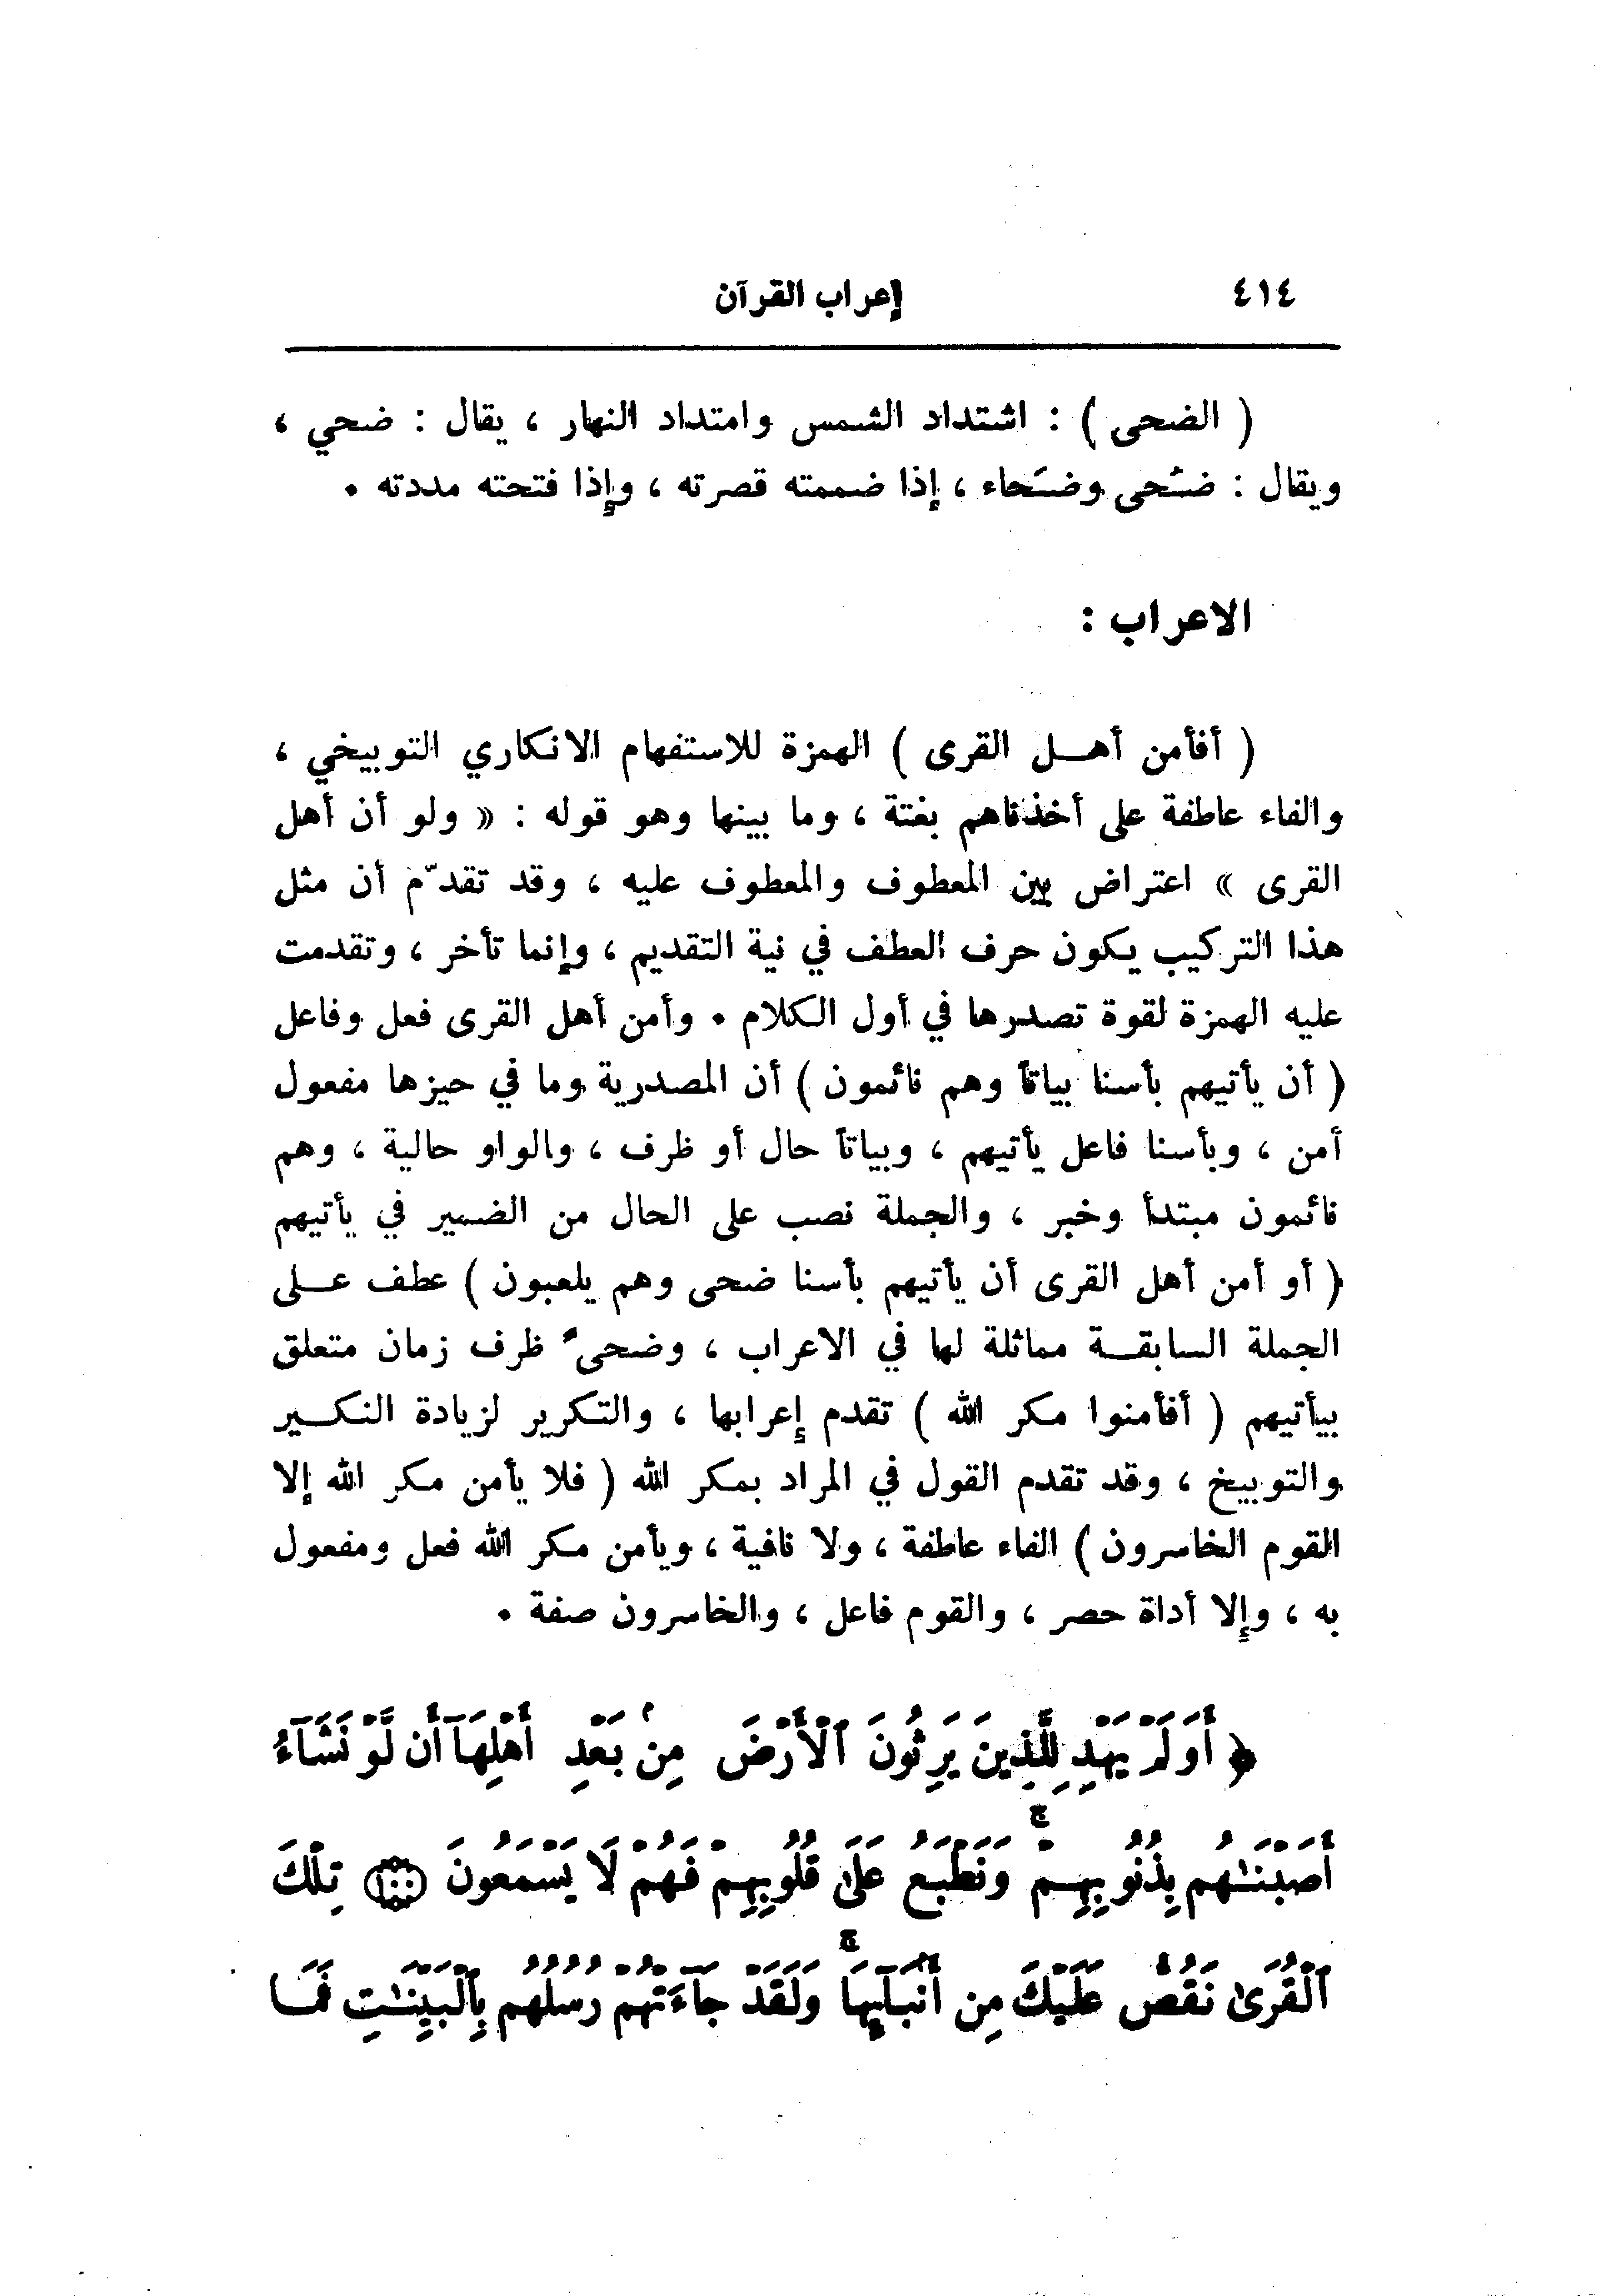 ٤١٤ إعراب القرآن
( الضحى ) : اشتداد الشمس وامتداد النهار ، يقال : ضحي ،
ويقال : ضُحى وضَحاء ، إذا ضممته قصرته ، وإذا فتحته مددته .
الاعراب :
( أفأمن أهل القرى ) الهمزة للاستفهام الانكاري التوبيخي ،
والفاء عاطفة على أخذناهم بغتة ، وما بينها وهو قوله : « ولو أن أهل
القرى » اعتراض بين المعطوف والمعطوف عليه ، وقد تقدّم أن مثل
هذا التركيب يكون حرف العطف في نية التقديم ، وإنما تأخر ، وتقدمت
عليه الهمزة لقوة تصدرها في أول الكلام . وأمن أهل القرى فعل وفاعل
( أن يأتيهم بأسنا بياتاً وهم نائمون ) أن المصدرية وما في حيزها مفعول
أمن ، وبأسنا فاعل يأتيهم ، وبياتاً حال أو ظرف ، والواو حالية ، وهم
نائمون مبتدأ وخبر ، والجملة نصب على الحال من الضمير في يأتيهم
( أو أمن أهل القرى أن يأتيهم بأسنا ضحى وهم يلعبون ) عطف على
الجملة السابقة مماثلة لها في الاعراب ، وضحىً ظرف زمان متعلق
بيأتيهم ( أفأمنوا مكر الله ) تقدم إعرابها ، والتكرير لزيادة النكير
والتوبيخ ، وقد تقدم القول في المراد بمكر الله ( فلا يأمن مكر الله إلا
القوم الخاسرون ) الفاء عاطفة ، ولا نافية ، ويأمن مكر الله فعل ومفعول
به ، وإلا أداة حصر ، والقوم فاعل ، والخاسرون صفة .
﴿ أَوَلَمْ يَهْدِ لِلَّذِينَ يَرِثُونَ ٱلْأَرْضَ مِنۢ بَعْدِ أَهْلِهَآ أَن لَّوْ نَشَآءُ
أَصَبْنَٰهُم بِذُنُوبِهِمْ ۚ وَنَطْبَعُ عَلَىٰ قُلُوبِهِمْ فَهُمْ لَا يَسْمَعُونَ ١٠٠ تِلْكَ
ٱلْقُرَىٰ نَقُصُّ عَلَيْكَ مِنْ أَنۢبَآئِهَا ۚ وَلَقَدْ جَآءَتْهُمْ رُسُلُهُم بِٱلْبَيِّنَٰتِ فَمَا